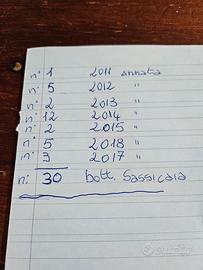 n: 1 2011 annata
n: 5 2012 "
n: 2 2013 "
n: 12 2014 "
n: 2 2015 "
n: 5 2018 "
n: 3 2017 "
n: 30 bott. Sassicaia
subito